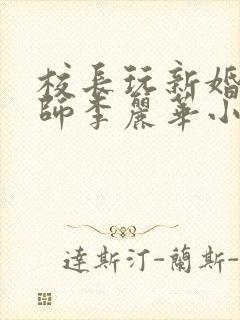 校長玩新婚
師李麗華小
達斯汀-蘭斯-